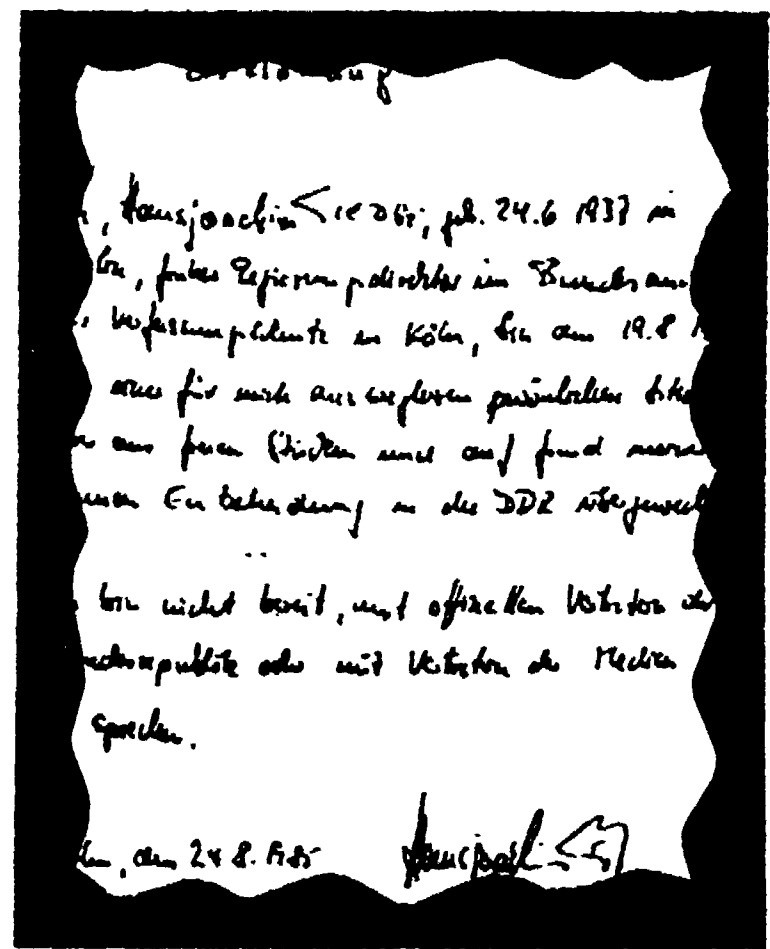 Erklärung
, Hansjoachim Tiedge, geb. 24.6 1937 in
lin, früher Regierungsdirektor im Bundesam
Verfassungsschutz in Köln, bin am 19.8 1
einer für mich ausweglosen persönlichen Situ
aus freien Stücken und auf Grund meine
Entscheidung in die DDR übergewech
bin nicht bereit, mit offiziellen Vertretern der
ndesrepublik oder mit Vertretern der Medien
sprechen.
lin, den 24 8. 1985 Hansjoachim Tiedge